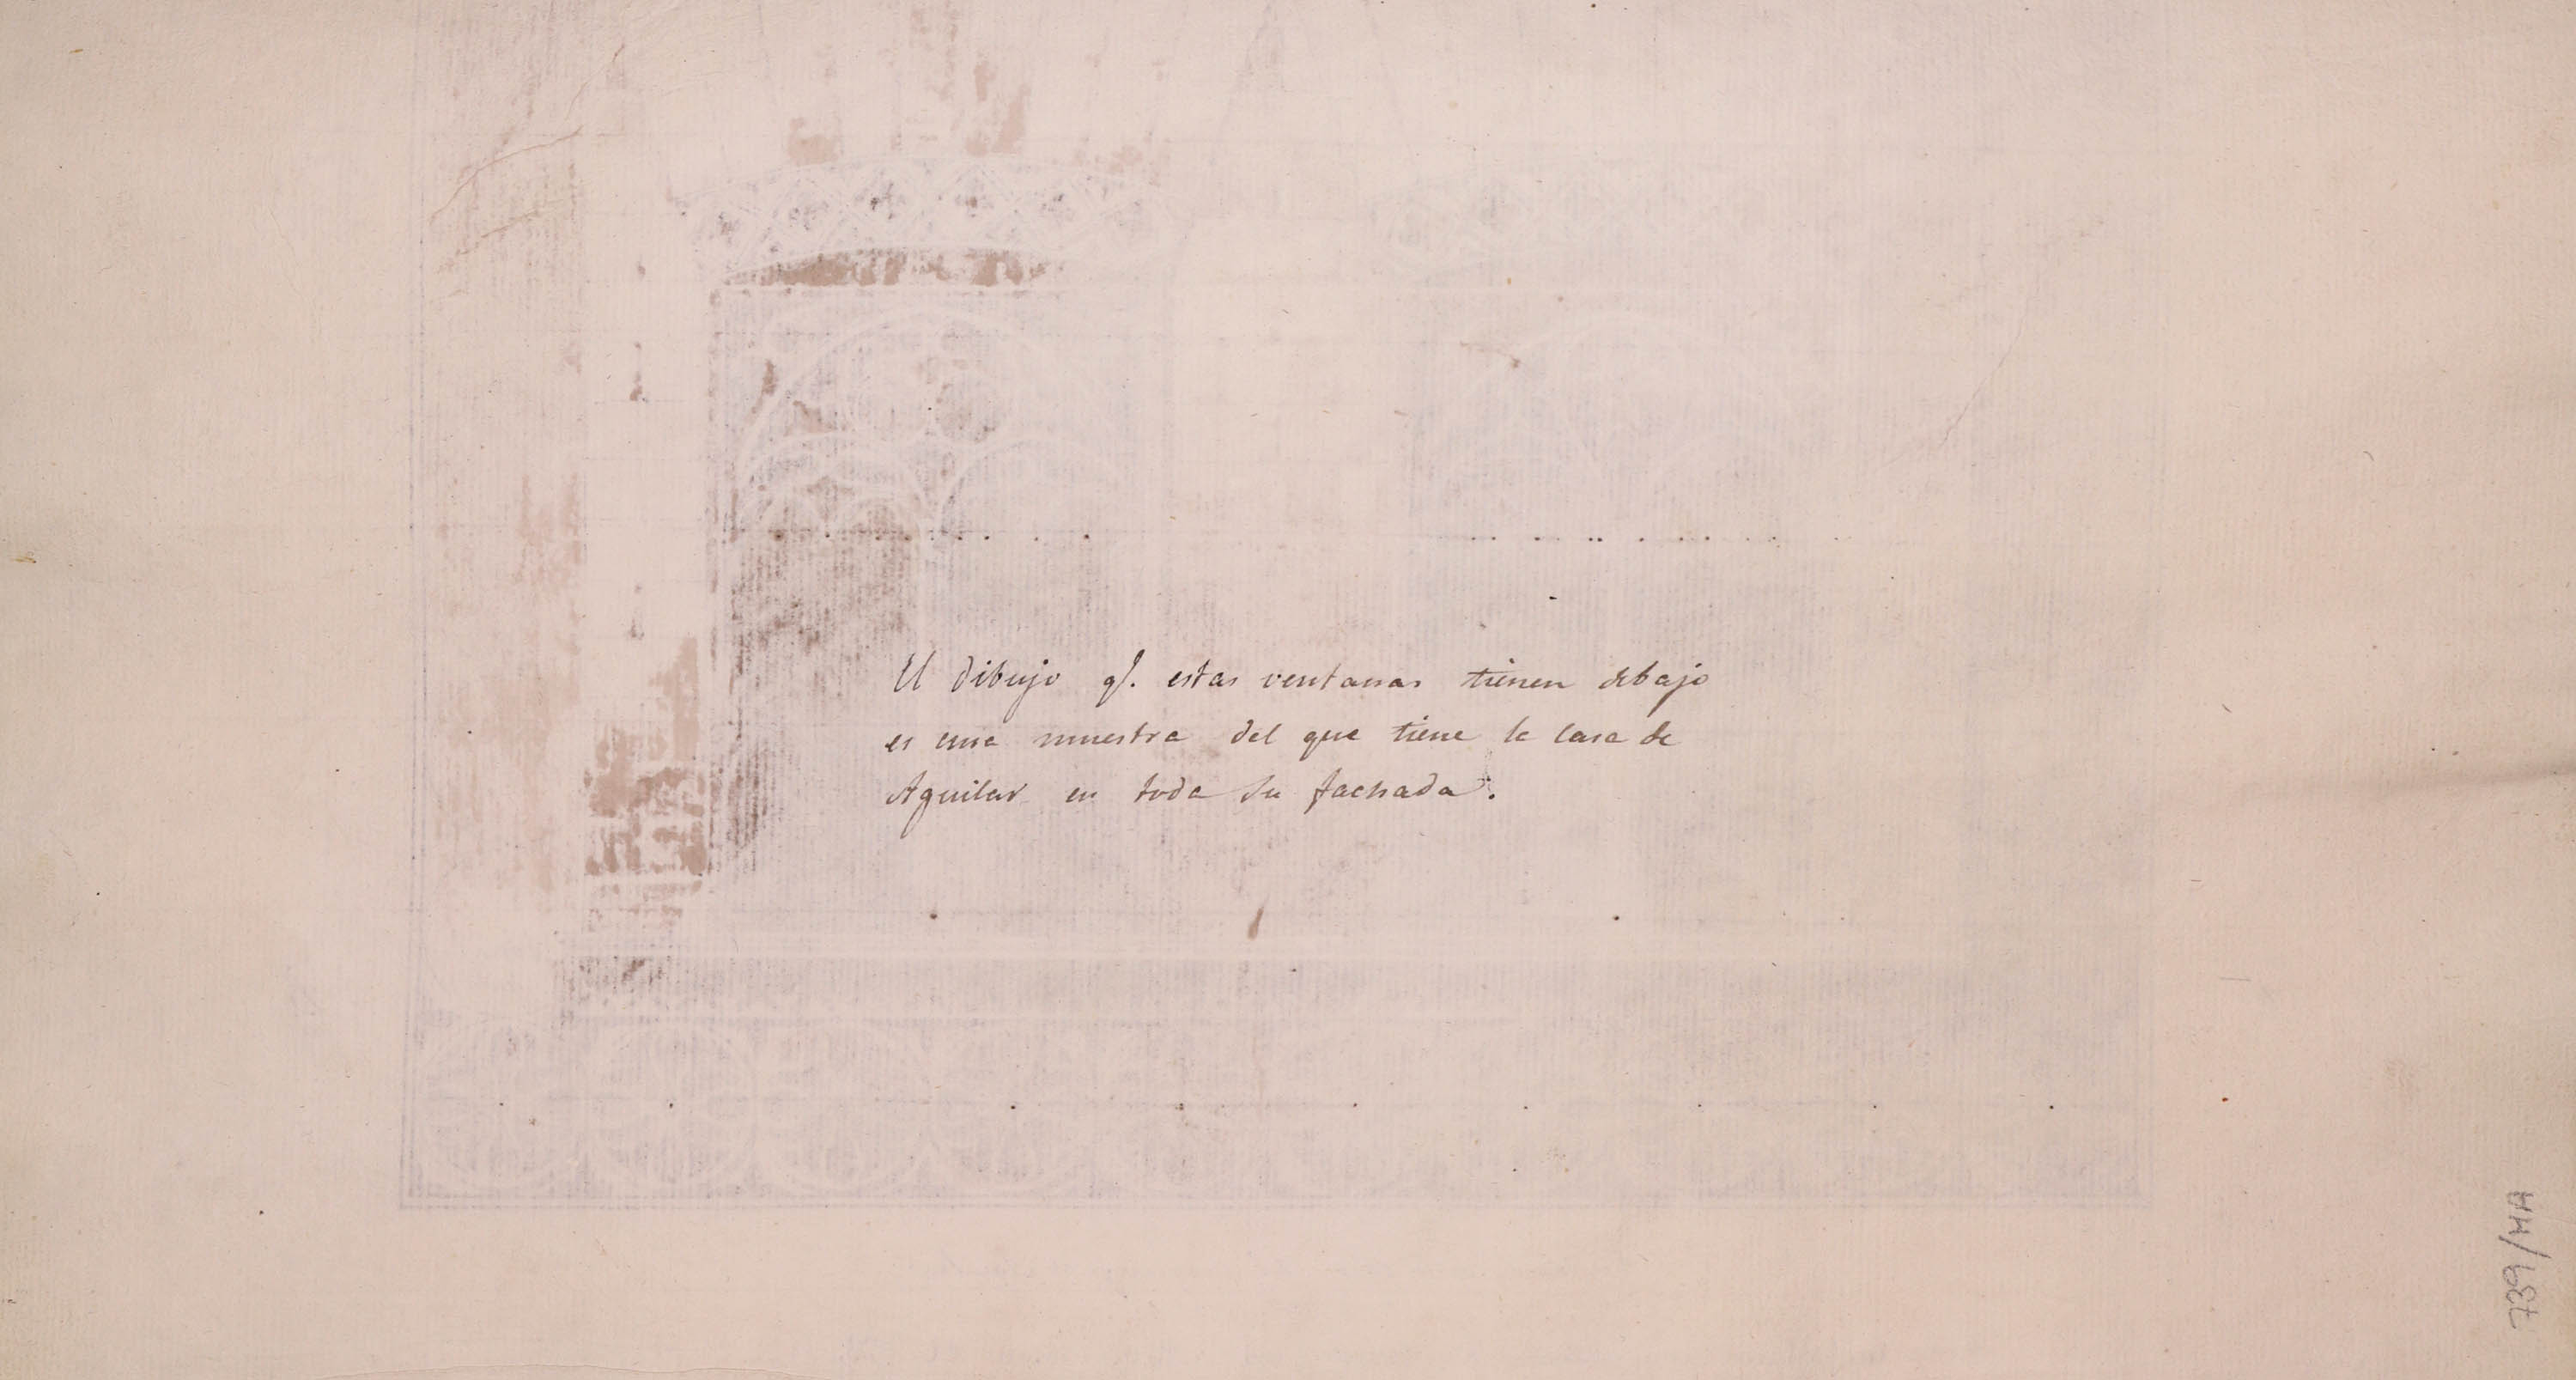 El dibujo q.e estas ventanas tienen debajo
es una muestra del que tiene la casa de
Aguilar en toda su fachada.
739/44